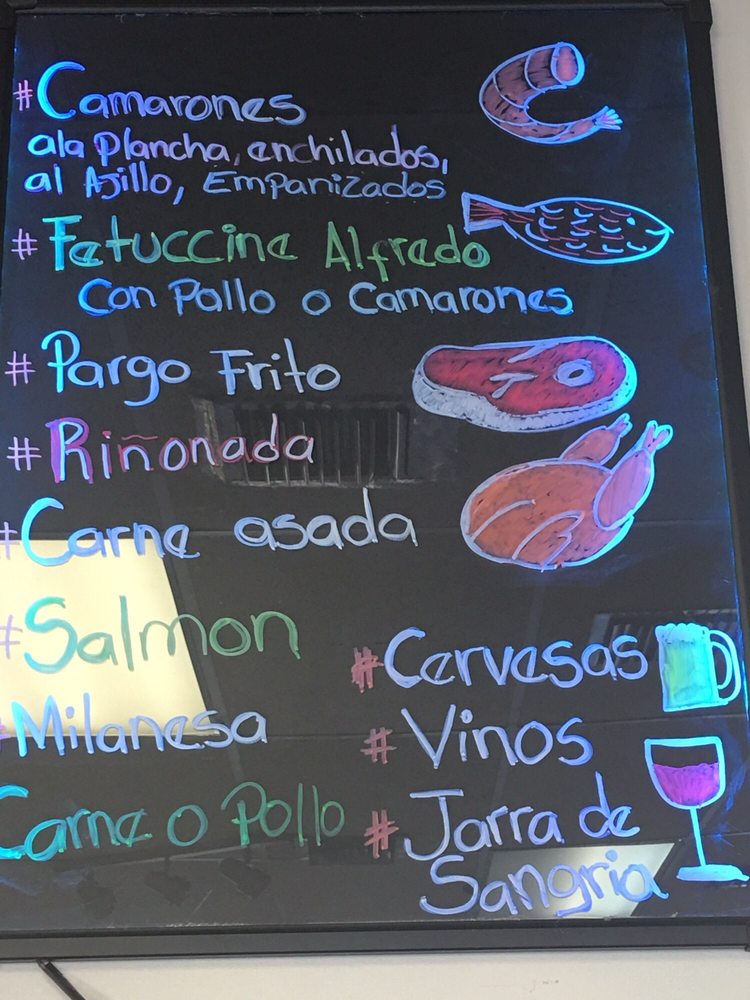 #Camarones
ala plancha, enchilados,
al Ajillo, Empanizados
#Fetuccine Alfredo
Con Pollo o Camarones
#Pargo Frito
#Riñonada
#Carne asada
#Salmon
#Milanesa
Carne o Pollo
#Cervesas
#Vinos
#Jarra de
Sangria